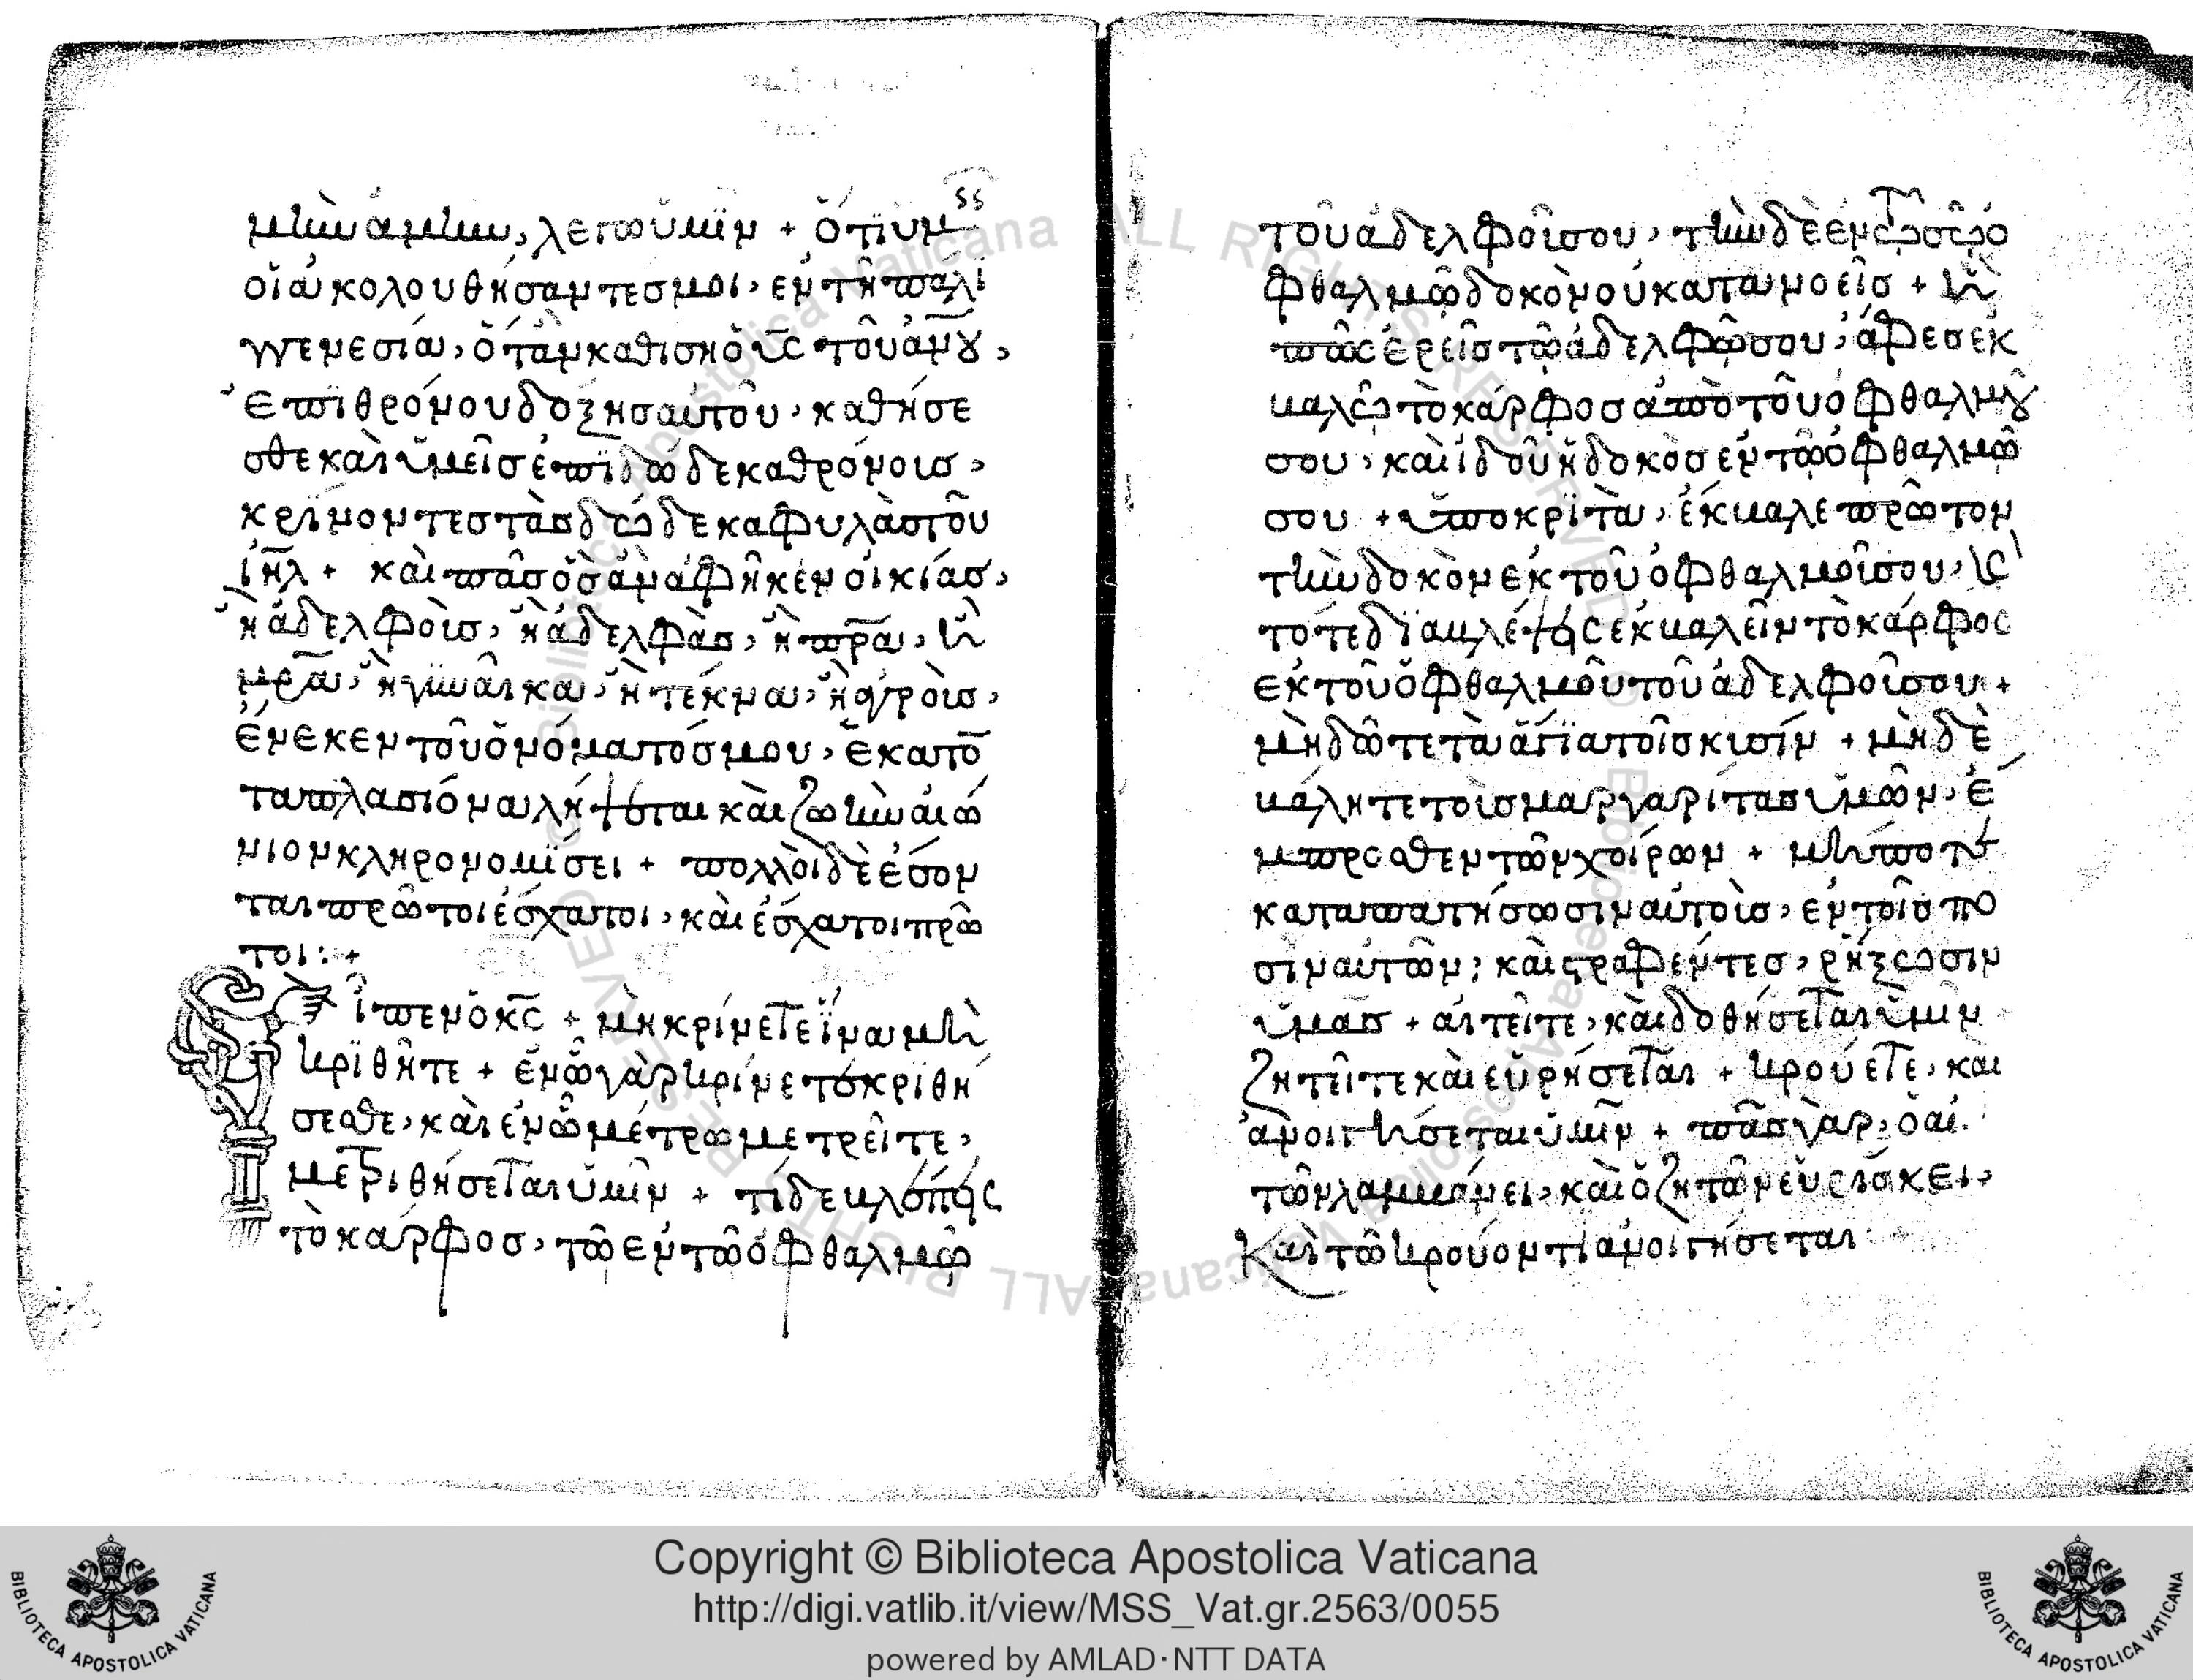 μὴν ἀμὴν, λέγω ὑμῖν + ὅτι ὑμ
οἱ ἀκολουθήσαντες μοι, ἐν τῆ παλι
γγενεσία, ὅταν καθίση ὁ ὑς τοῦ ἀνου,
ἐπι θρόνου δόξης αὐτοῦ, καθήσε
σθε καὶ ὑμεῖς ἐπι δώδεκα θρόνους,
κρίνοντες τὰς δώδεκα φυλὰς τοῦ
ιηλ + καὶ πᾶς ὃς ἀν ἀφῆκεν οἰκίας,
ἢ ἀδελφοὺς, ἢ ἀδελφὰς, ἢ πρα, ἢ
μρα, ἢ γυναῖκα, ἢ τέκνα, ἢ ἀγροὺς,
ἕνεκεν τοῦ ὀνόματός μου, ἑκατο
ταπλασίονα λήψεται καὶ ζωὴν αἰώ
νιον κληρονομίσει + πολλοὶ δὲ ἔσον
ται πρῶτοι ἔσχατοι, καὶ ἔσχατοι πρῶ
τοι : +
Εἶπεν ὁ κς + μὴ κρίνετε ἵνα μὴ
κριθῆτε + ἐν ὧ γὰρ κρίνετο κριθή
σεσθε, καὶ ἐν ὧ μέτρω μετρεῖτε,
μετριθήσεται ὑμῖν + τί δε βλέπεις
τὸ κάρφος, τῶ ἐν τῶ ὀφθαλμῶ
τοῦ ἀδελφοῦ σου, τὴν δὲ ἐν τῶ σῶ ὀ
φθαλμῶ δοκὸν οὐ κατανοεῖς + ἢ
πῶς ἐρεῖς τῶ ἀδελφῶ σου, ἄφες ἐκ
βαλῶ τὸ κάρφος ἀπὸ τοῦ ὀφθαλμοῦ
σου, καὶ ἰδοὺ ἡ δοκὸς ἐν τῶ ὀφθαλμῶ
σου + ὑποκριτὰ, ἔκβαλε πρῶτον
τὴν δοκὸν ἐκ τοῦ ὀφθαλμοῦ σου, κ
τότε διαβλέψεις ἐκβαλεῖν τὸ κάρφος
ἐκ τοῦ ὀφθαλμοῦ τοῦ ἀδελφοῦ σου +
μὴ δῶτε τὰ ἅγια τοῖς κυσίν + μὴ δὲ
βάλητε τοὺς μαργαρίτας ὑμῶν, ἔ
μπροσθεν τῶν χοίρων + μήποτε
καταπατήσωσιν αὐτοὺς, ἐν τοῖς πο
σὶν αὐτῶν; καὶ στραφέντες, ρήξωσιν
ὑμᾶς + αἰτεῖτε, καὶ δοθήσεται ὑμιν
ζητεῖτε καὶ εὑρήσεται + κρούετε, καὶ
ἀνοιγήσεται ὑμῖν + πᾶς γὰρ, ὁ αἰ
τῶν λαμβάνει, καὶ ὁ ζητῶν εὑρίσκει,
Καὶ τῶ κρούοντι ἀνοιγήσεται
Copyright © Biblioteca Apostolica Vaticana
http://digi.vatlib.it/view/MSS_Vat.gr.2563/0055
powered by AMLAD·NTT DATA
BIBLIOTECA APOSTOLICA VATICANA
BIBLIOTECA APOSTOLICA VATICANA